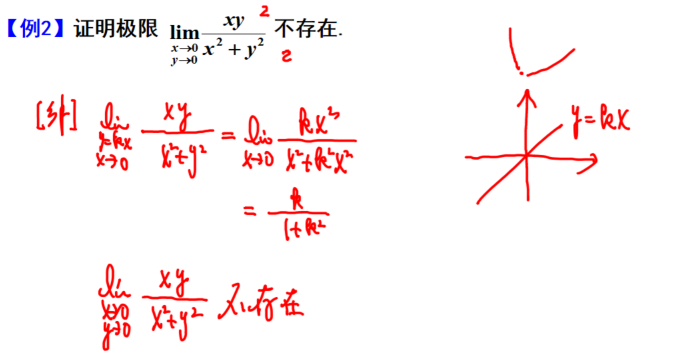 【例2】证明极限 lim x→0 y→0 xy/(x²+y²) 不存在.
2
2
[解] lim y=kx x→0 xy/(x²+y²) = lim x→0 kx²/(x²+k²x²)
y=kx
= k/(1+k²)
lim x→0 y→0 xy/(x²+y²) 不存在